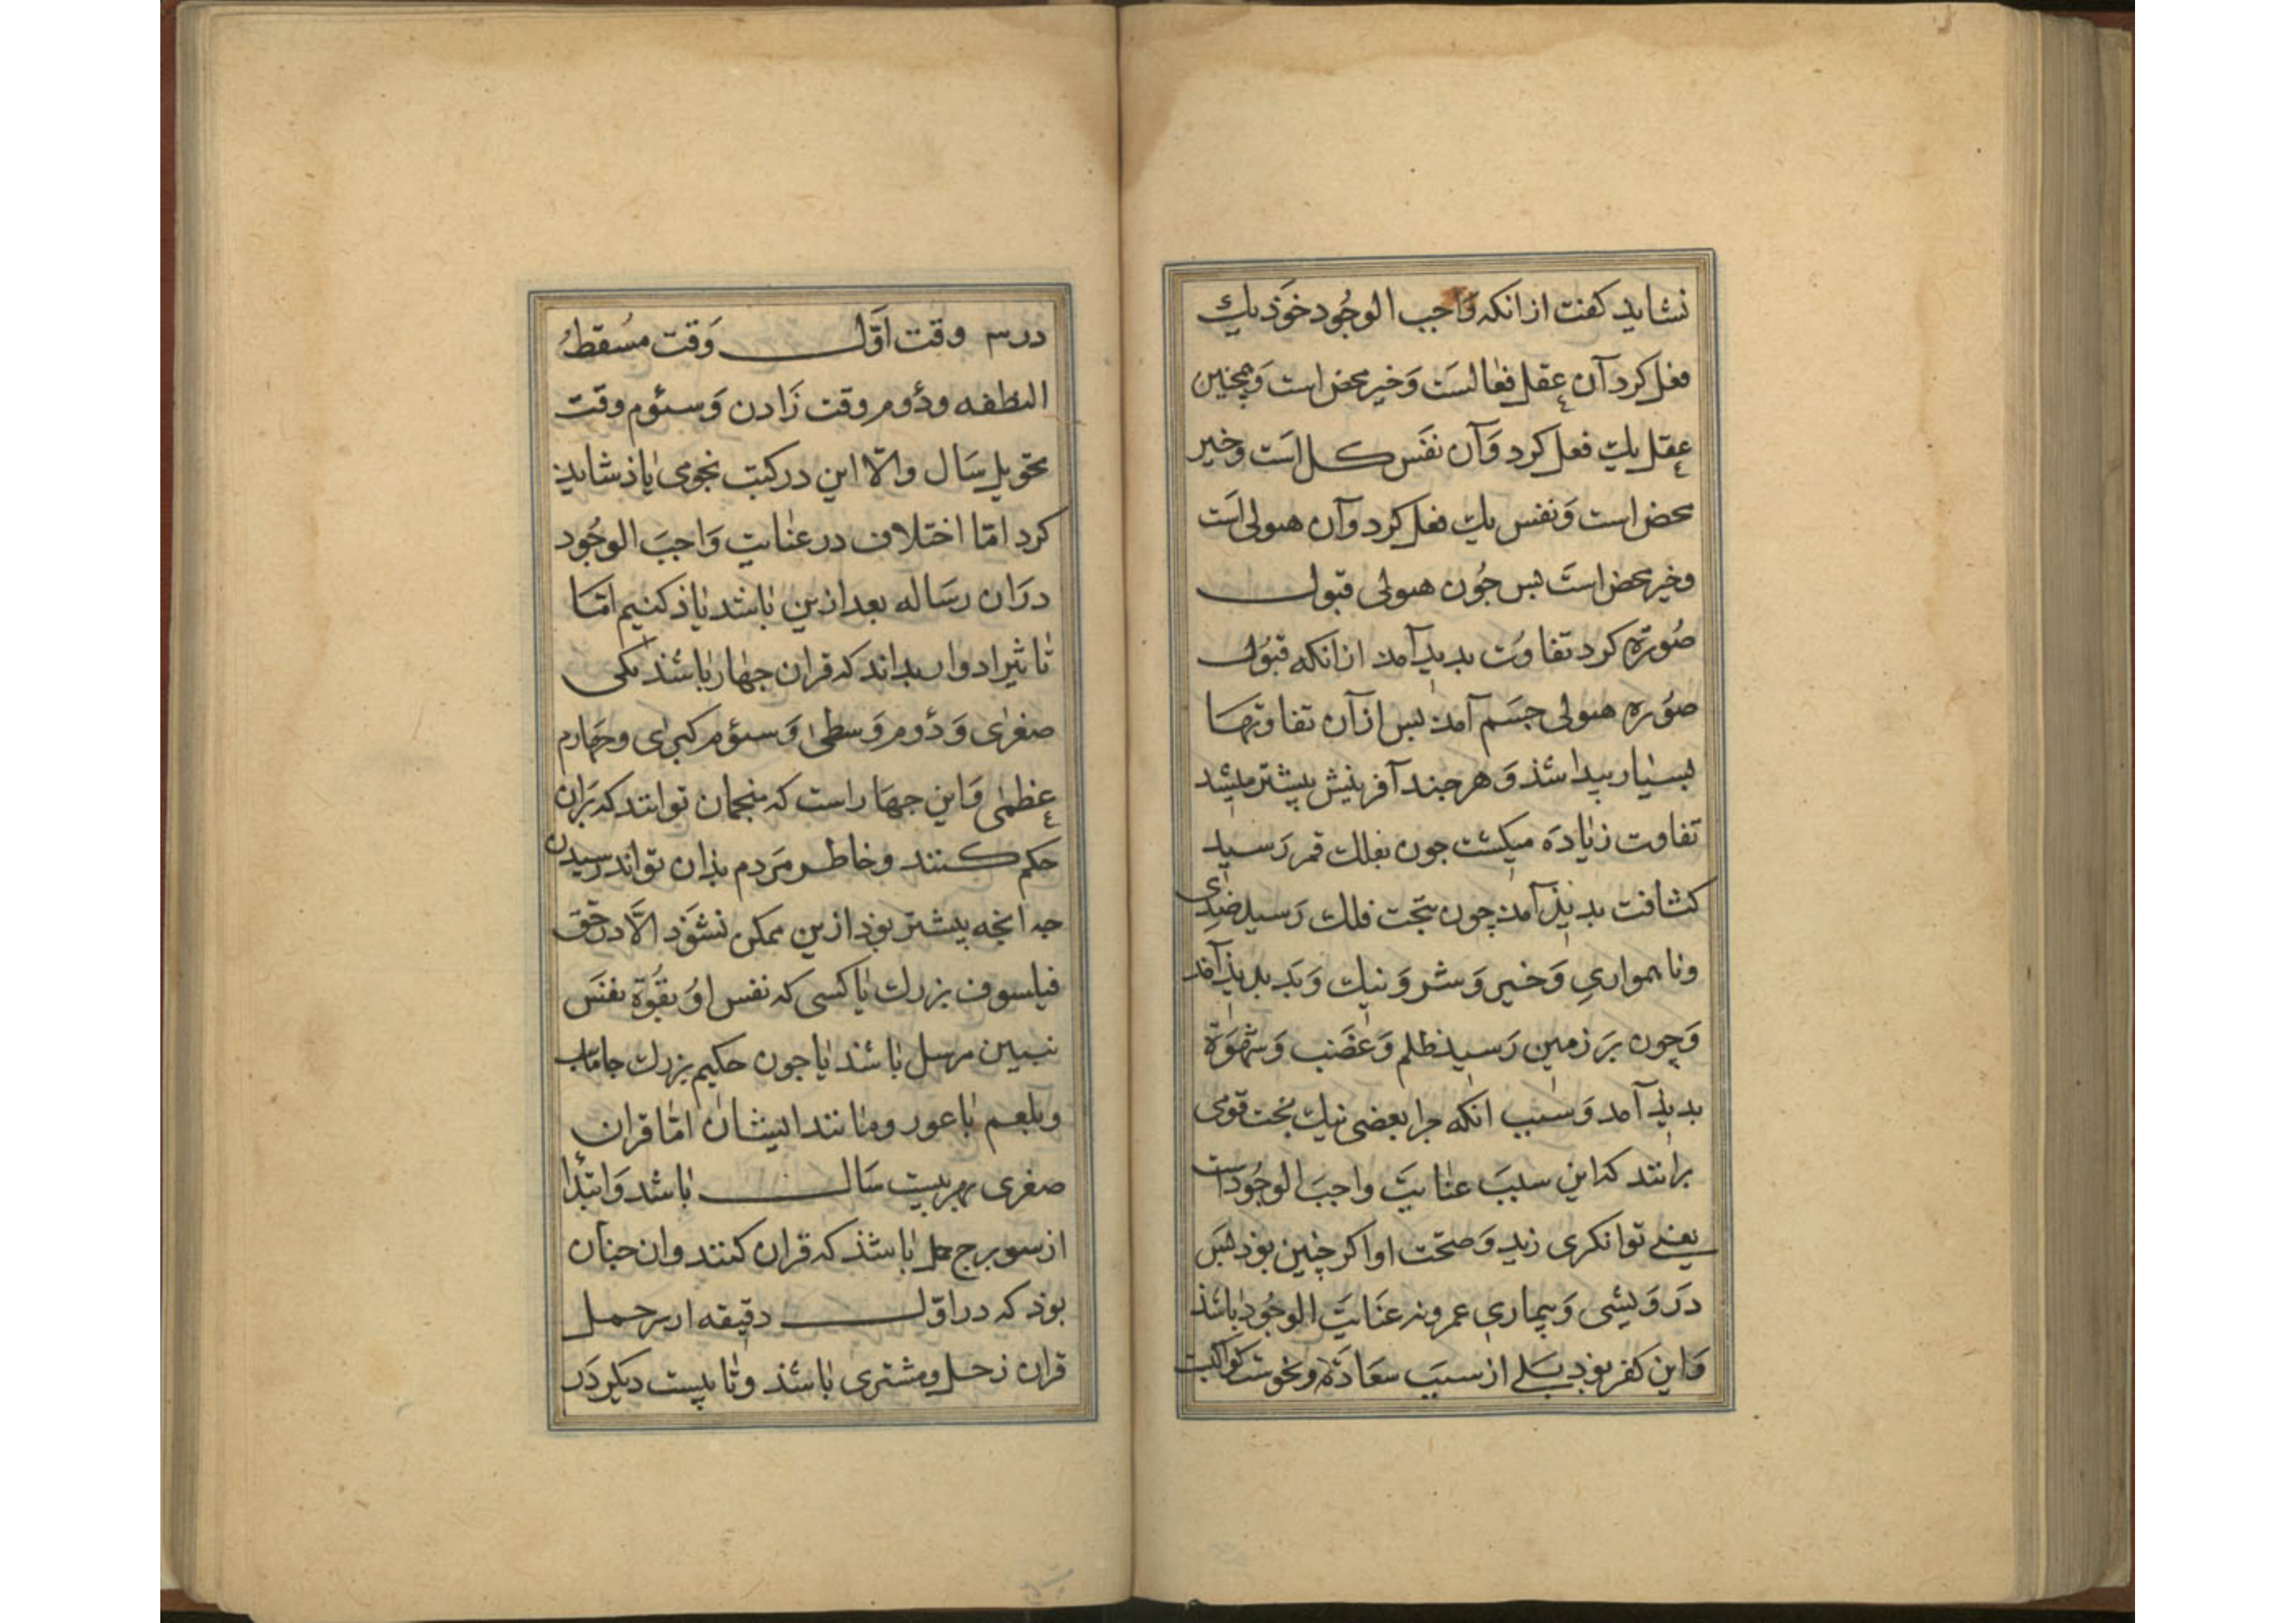 نشاید کفت از انکه واجب الوجود خوذ یک
فعل کرد آن عقل فعالست و خیر محض است و همچنین
عقل یک فعل کرد و آن نفس کل است و خیر
محض است و نفس یک فعل کرد و آن هیولی است
و خیر محض است بس جون هیولی قبول
صورة کرد تفاوت بدید آمد از انکه قبول
صورة هیولی جسم آمد بس از آن تفاوتها
بسیار بیدا شذ و هر جند آفرینش بیشتر میشد
تفاوت زیاده میکشت جون بفلک قمر رسید
کثافت بدیذ آمد چون بتحت فلک رسید ضدی
و ناهمواری و خیر و شر و نیک و بد بدیذ آمد
و چون بر زمین رسید ظلم و غضب و شهوة
بدید آمد و سبب انکه جرا بعضی نیک بخت قومی
برانند که این سبب عنایت واجب الوجود است
یعنی توانکری زید و صحت او اکر چنین بوذ بس
درویشی و بیماری عمرو نه عنایت الوجود باشذ
و این کفر بوذ بلی از سبب سعادة و نحوست کواکبت
در سه وقت اول وقت مسقط
النطفه و دوم وقت زادن و سئوم وقت
تحویل سال و الا این در کتب نجومی یاذ شاید
کرد اما اختلاف در عنایت واجب الوجود
در ان رساله بعد ازین باشد یاذ کنیم اما
تاثیر ادوار بداند که قران جهار باشند یکی
صغری و دوم وسطی و سئوم کبری و چهارم
عظمی و این جهار است که منجمان توانند که بران
حکم کنند و خاطر مردم بذان تواند رسیدن
جه انجه بیشتر بوذ ازین ممکن نشوذ الا در حق
فیلسوف بزرک یا کسی که نفس او بقوة نفس
نبیین مرسل باشد یا جون حکیم بزرک جاماسب
و بلعم باعور و مانند ایشان اما قران
صغری بهر بیست سال باشد و ابتدا
از سو برج حمل باشذ که قران کنند و ان جنان
بوذ که در اول دقیقه از سر حمل
قران زحل و مشتری باشذ و تا بیست دیکر در